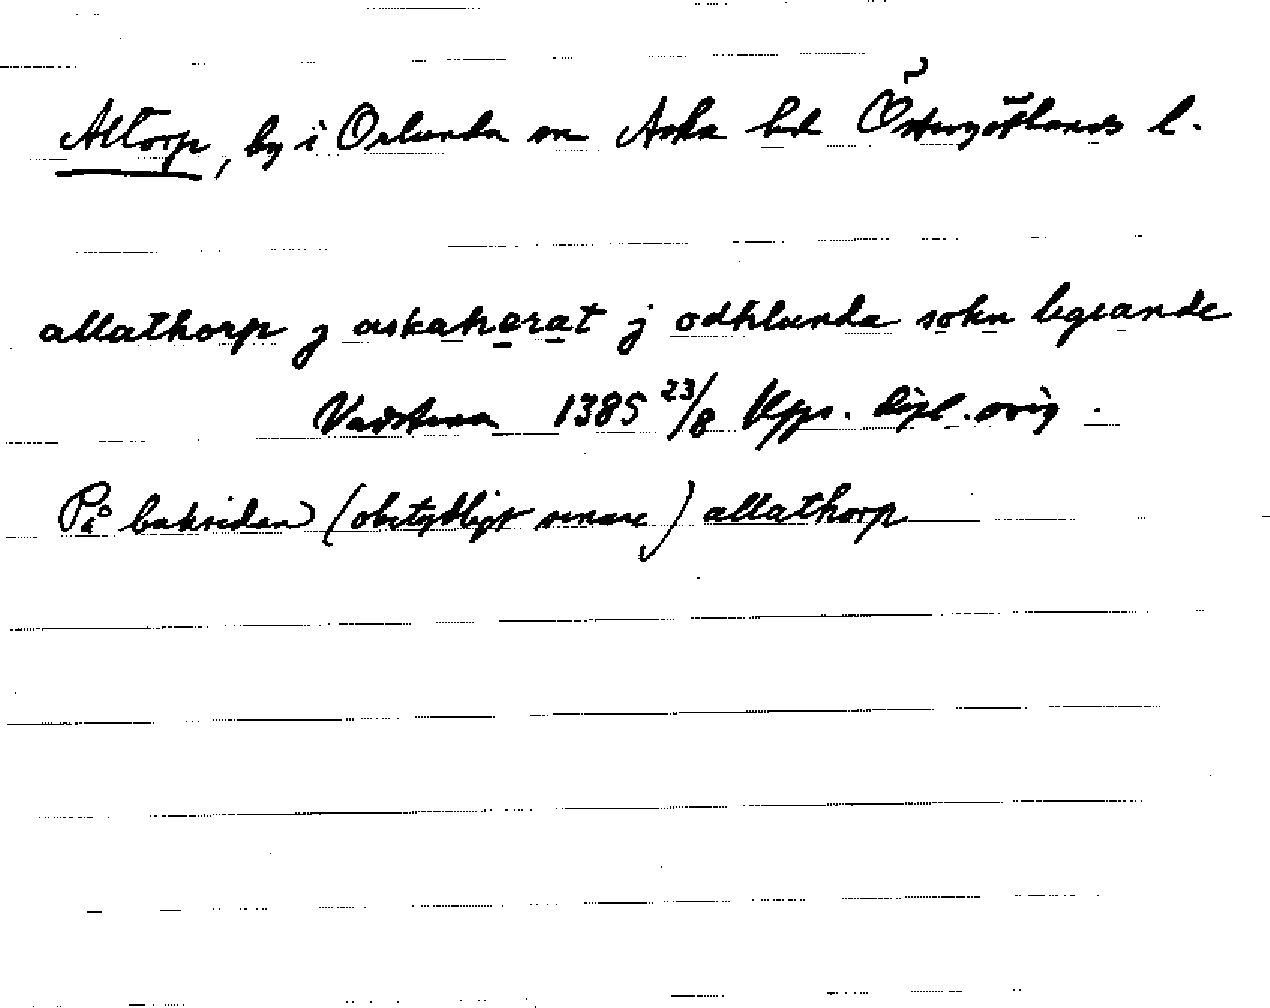 Altorp, by i Orlunda sn Aska hd Östergötlands l.
allathorp j askahærat j odhlunda sokn legeande
Vadstena 1385 23/8 Upps. dipl. orig.
På baksidan (obetydligt senare) allathorp